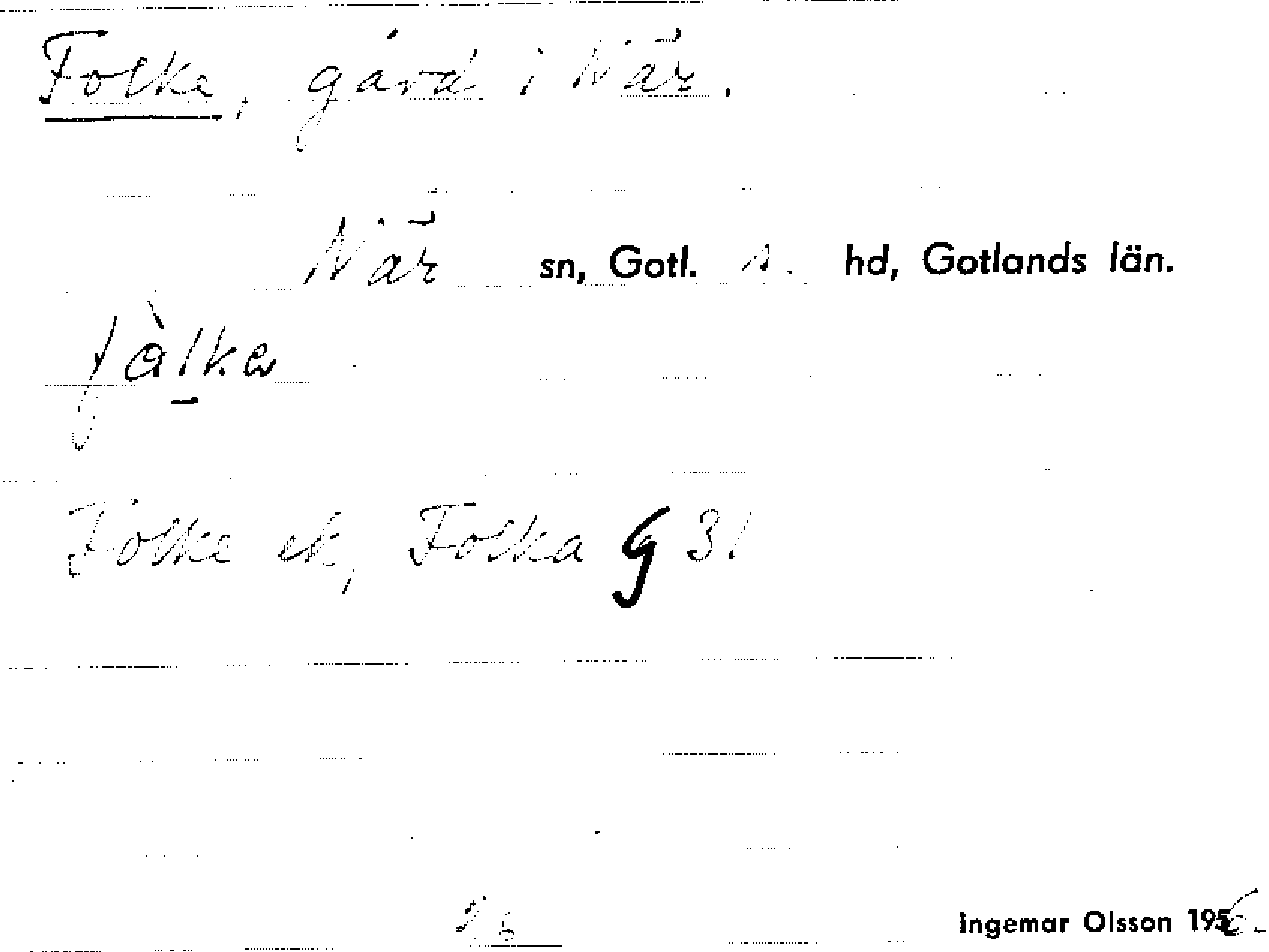 Folke, gård i När.
När sn, Gotl. s. hd, Gotlands län.
fàlkɐ
Folke ek, Folka G 31
Ingemar Olsson 1956